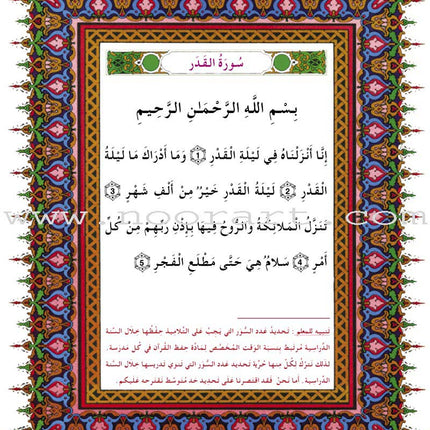 سُورَةُ القَدَر
بِسْمِ اللَّهِ الرَّحْمَـٰنِ الرَّحِيمِ
إِنَّا أَنْزَلْنَاهُ فِي لَيْلَةِ الْقَدْرِ ﴿1﴾ وَمَا أَدْرَاكَ مَا لَيْلَةُ
الْقَدْرِ ﴿2﴾ لَيْلَةُ الْقَدْرِ خَيْرٌ مِنْ أَلْفِ شَهْرٍ ﴿3﴾
www.noorart.com
تَنَزَّلُ الْمَلَائِكَةُ وَالرُّوحُ فِيهَا بِإِذْنِ رَبِّهِمْ مِنْ كُلِّ
أَمْرٍ ﴿4﴾ سَلَامٌ هِيَ حَتَّى مَطْلَعِ الْفَجْرِ ﴿5﴾
تنبيه للمعلم : تحديد عدد السُّوَر التي يجب على التلاميذ حفظُها خلال السنة
الدِّراسية مُرتبط بنسبة الوَقت المُخصَّص لمادَّة حفظ القرآن في كُل مدرسة.
لذلك نترُكُ لكُلّ منها حُرّية تحديد عدد السُّوَر التي تنوي تدريسها خلال السنة
الدِّراسية. أما نحن فقد اقتصرنا على تحديد حد مُتوسّط نقترحه عليكم.